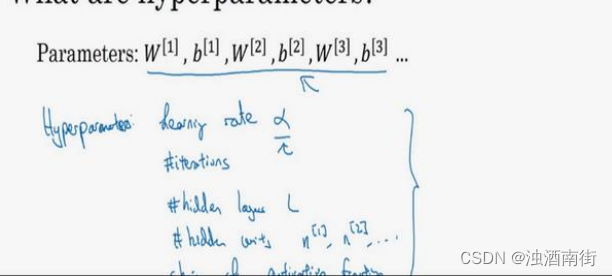 What are hyperparameters?
Parameters: W[1], b[1], W[2], b[2], W[3], b[3] ...
Hyperparameters: learning rate α
#iterations
#hidden layers L
#hidden units n[1], n[2], ...
choice of activation function
CSDN @浊酒南街